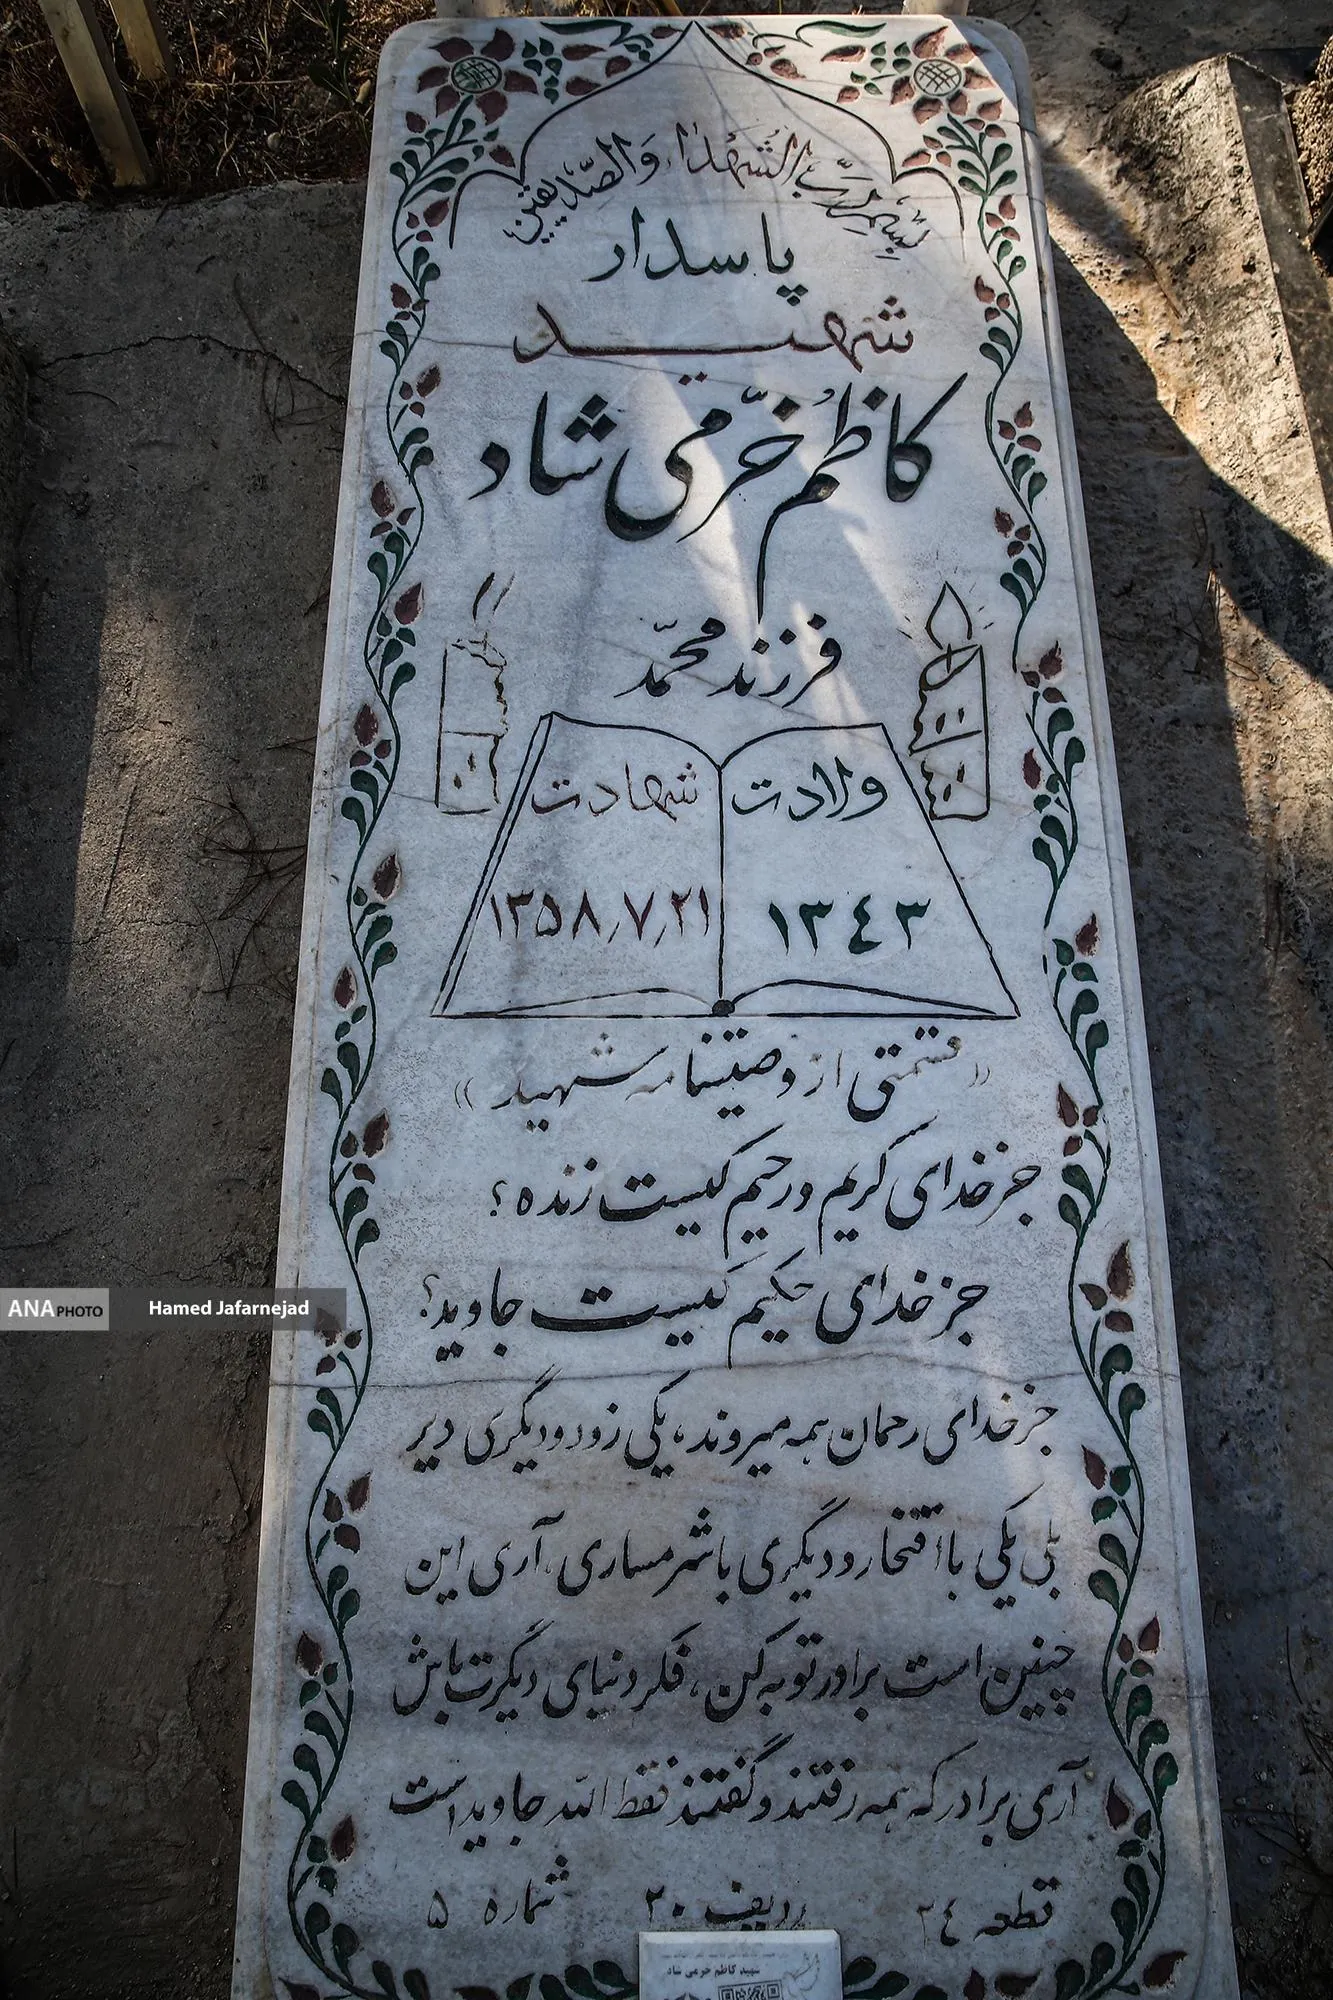 بسم رب الشهداء والصدیقین
پاسدار
شهید
کاظم خرّمی شاد
فرزند محمّد
ولادت
۱۳٤۳
شهادت
۱۳۵۸٫۷٫۲۱
«قسمتی از وصیتنامه شهید»
جز خدای کریم و رحیم کیست زنده؟
جز خدای حکیم کیست جاوید؟
جز خدای رحمان همه میروند، یکی زود و دیگری دیر
بلی یکی با افتخار و دیگری با شرمساری، آری این
چنین است برادر توبه کن، فکر دنیای دیگرت باش
آری برادر که همه رفتند و گفتند فقط الله جاوید است
قطعه ۲٤ ردیف ۲۰ شماره ۵
شهید کاظم خرمی شاد
ANA PHOTO Hamed Jafarnejad